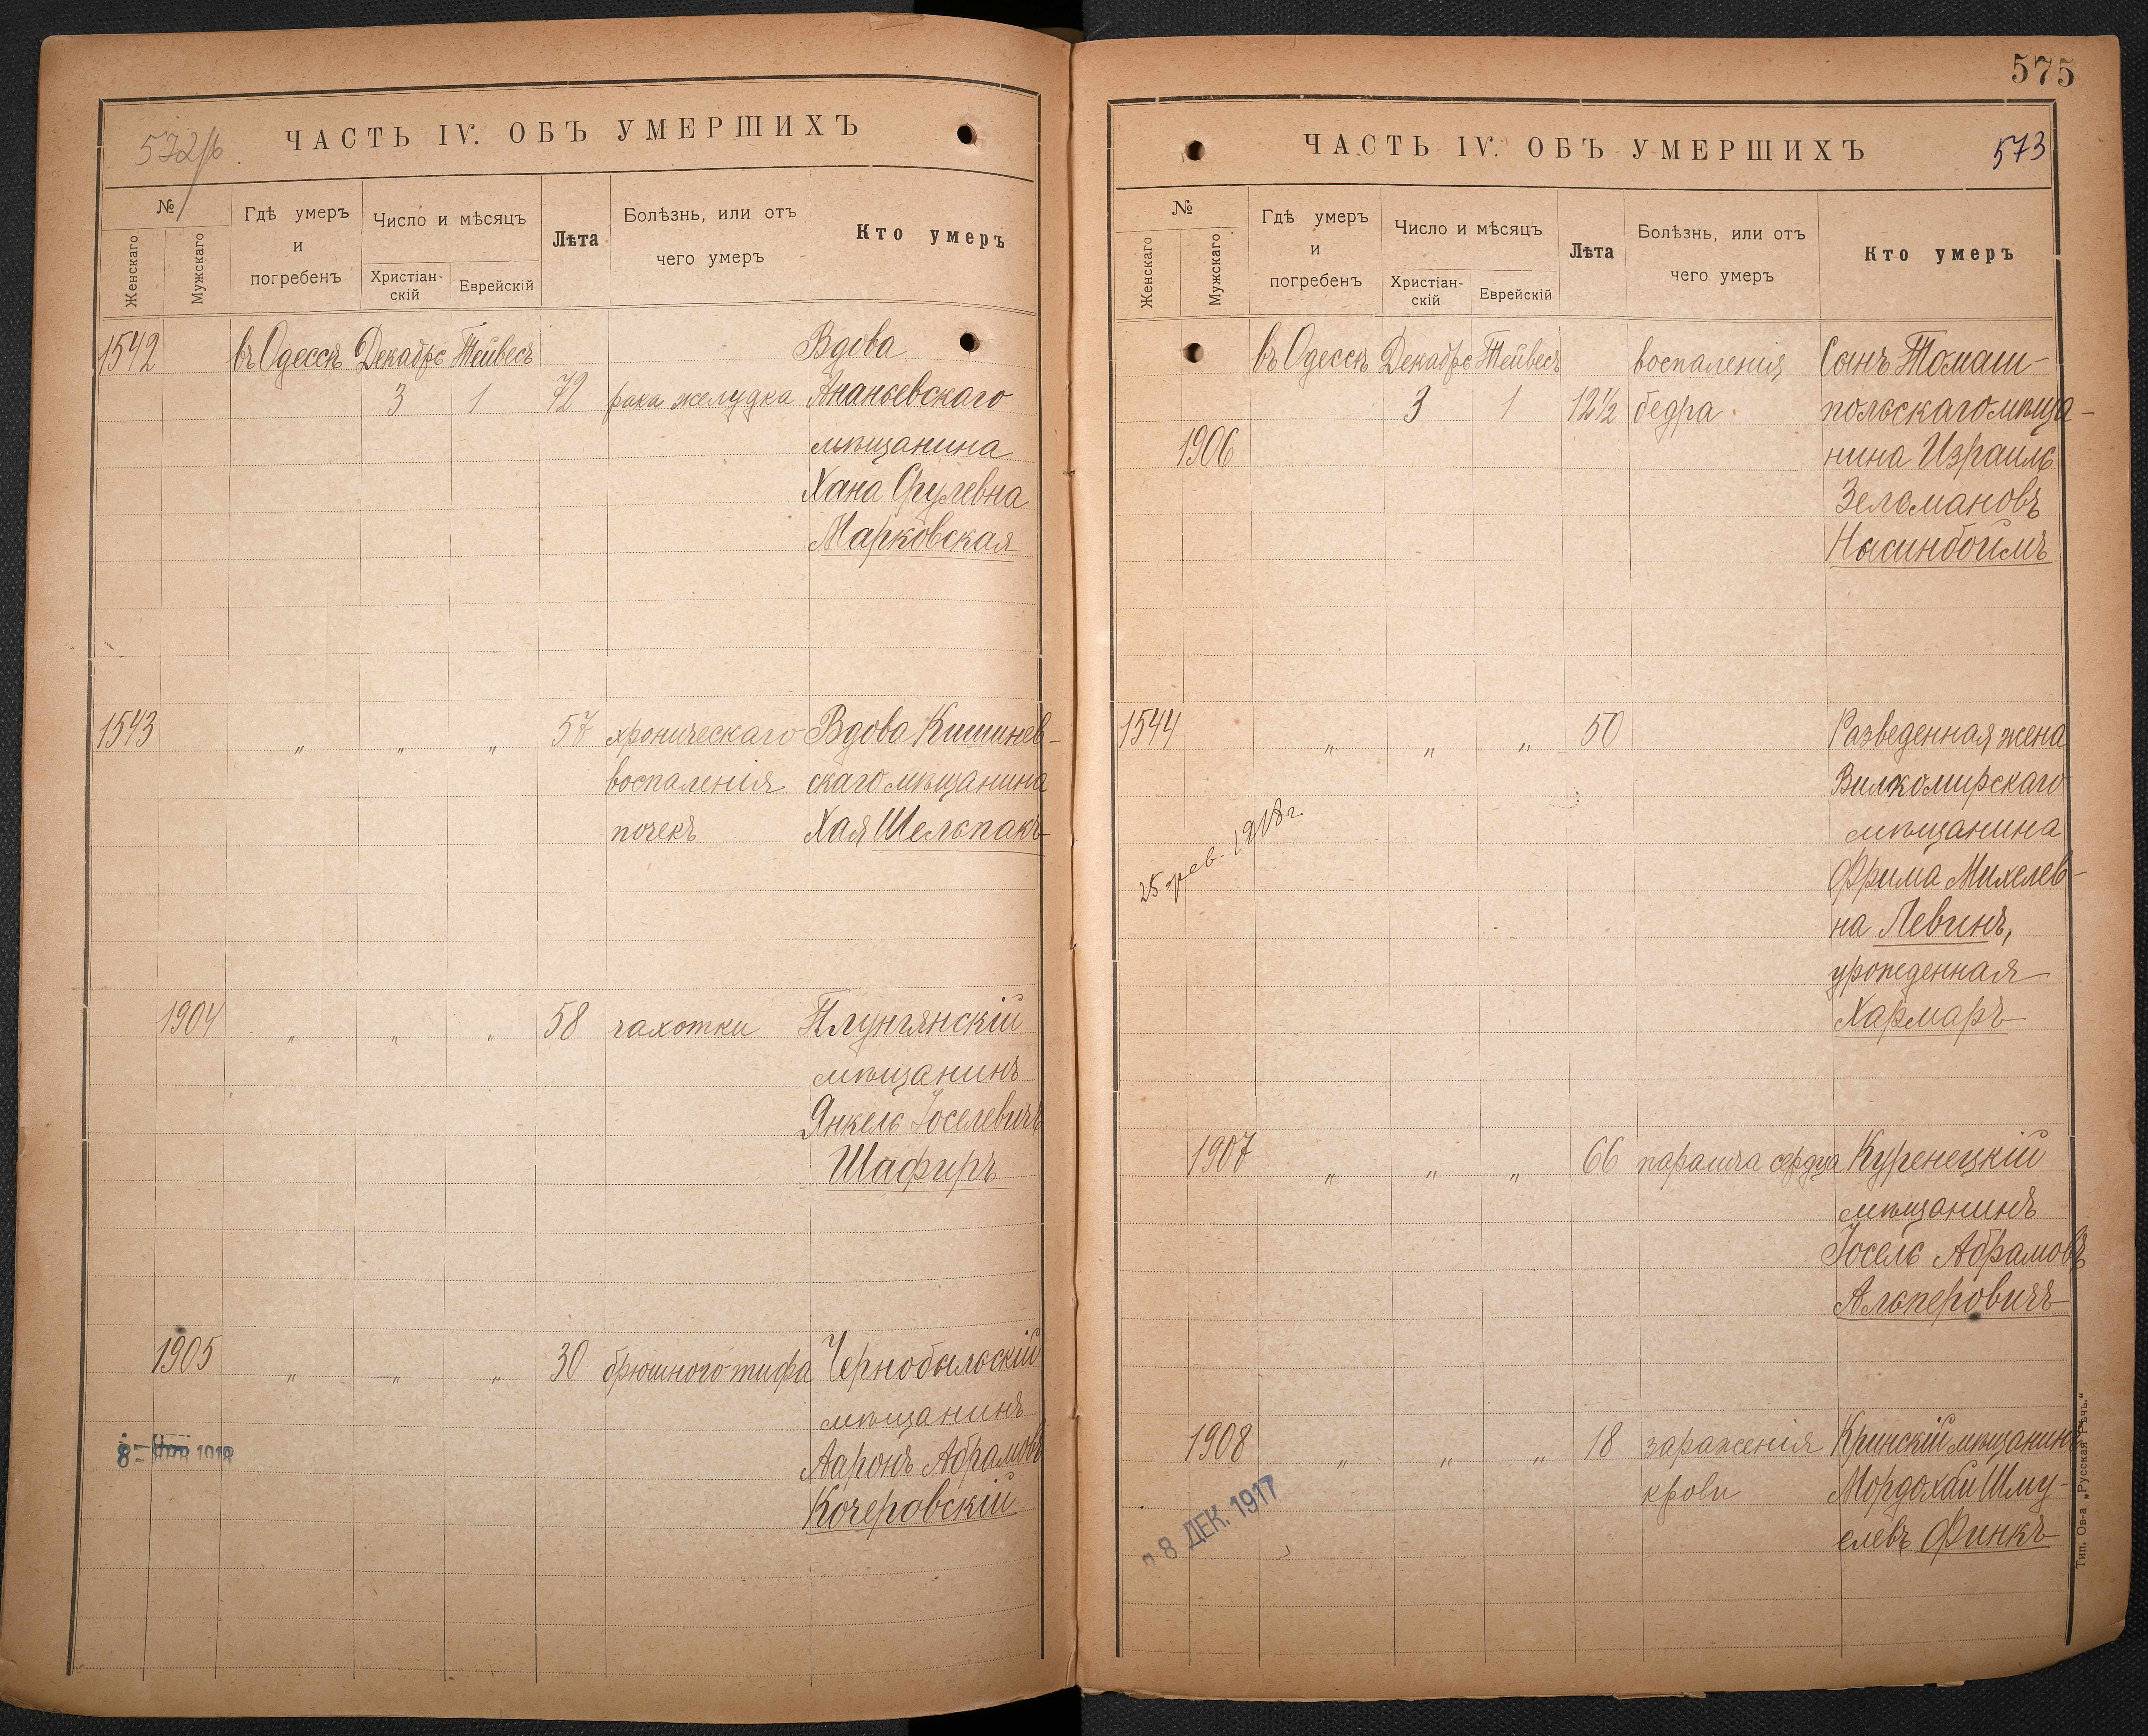 572/б.
ЧАСТЬ IV. ОБЪ УМЕРШИХЪ
№
Женскаго
Мужскаго
Гдѣ умеръ
и
погребенъ
Число и мѣсяцъ
Христіан-
скій
Еврейскій
Лѣта
Болѣзнь, или отъ
чего умеръ
Кто умеръ
1542 въ Одессѣ Декабрь Тейвесъ Вдова
3 1 72 рака желудка Ананьевскаго
мѣщанина
Хана Срулевна
Марковская
1543 „ „ „ 57 хроническаго Вдова Кишинев-
воспаленія скаго мѣщанина
почекъ Хая Шельпакъ
1904 „ „ „ 58 чахотки Плунгянскій
мѣщанинъ
Янкель Іоселевичъ
Шафиръ
1905 „ „ „ 30 брюшного тифа Чернобыльскій
мѣщанинъ
8- 1918 Ааронъ Абрамовъ
Кочеровскій
575
ЧАСТЬ IV. ОБЪ УМЕРШИХЪ
573
№
Женскаго
Мужскаго
Гдѣ умеръ
и
погребенъ
Число и мѣсяцъ
Христіан-
скій
Еврейскій
Лѣта
Болѣзнь, или отъ
чего умеръ
Кто умеръ
въ Одессѣ Декабрь Тейвесъ воспаленія Сынъ Томаш-
3 1 12½ бедра польскаго мѣща-
1906 нина Израиль
Зельмановъ
Нысинбоймъ
1544 „ „ „ 50 Разведенная жена
Вилкомирскаго
25 фев. 1918 г. мѣщанина
Фрима Михелев-
на Левинъ,
урожденная
Хармаръ
1907 „ „ „ 66 паралича сердца Куренецкій
мѣщанинъ
Іосель Абрамовъ
Альперовичъ
1908 „ „ „ 18 зараженія Кринскій мѣщанинъ
крови Мордохай Шму-
елевъ Финкъ
8 ДЕК. 1917
Тип. Ов-а „Русская Рѣчь.“